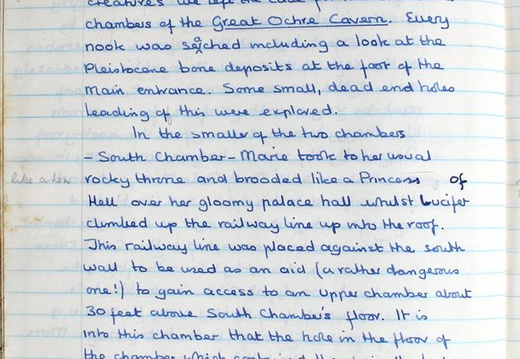 creatures we left the cave for
chambers of the Great Ochre Cavern. Every
nook was seached including a look at the
Pleistocene bone deposits at the foot of the
main entrance. Some small, dead end holes
leading of this were explored.
In the smaller of the two chambers
- South Chamber - Marie took to her usual
like a
rocky throne and brooded like a Princess of
Hell over her gloomy palace hall whilst Lucifer
climbed up the railway line up into the roof.
This railway line was placed against the south
wall to be used as an aid (a rather dangerous
one!) to gain access to an upper chamber about
30 feet above South Chamber's floor. It is
into this chamber that the hole in the floor of
the chamber which contained the